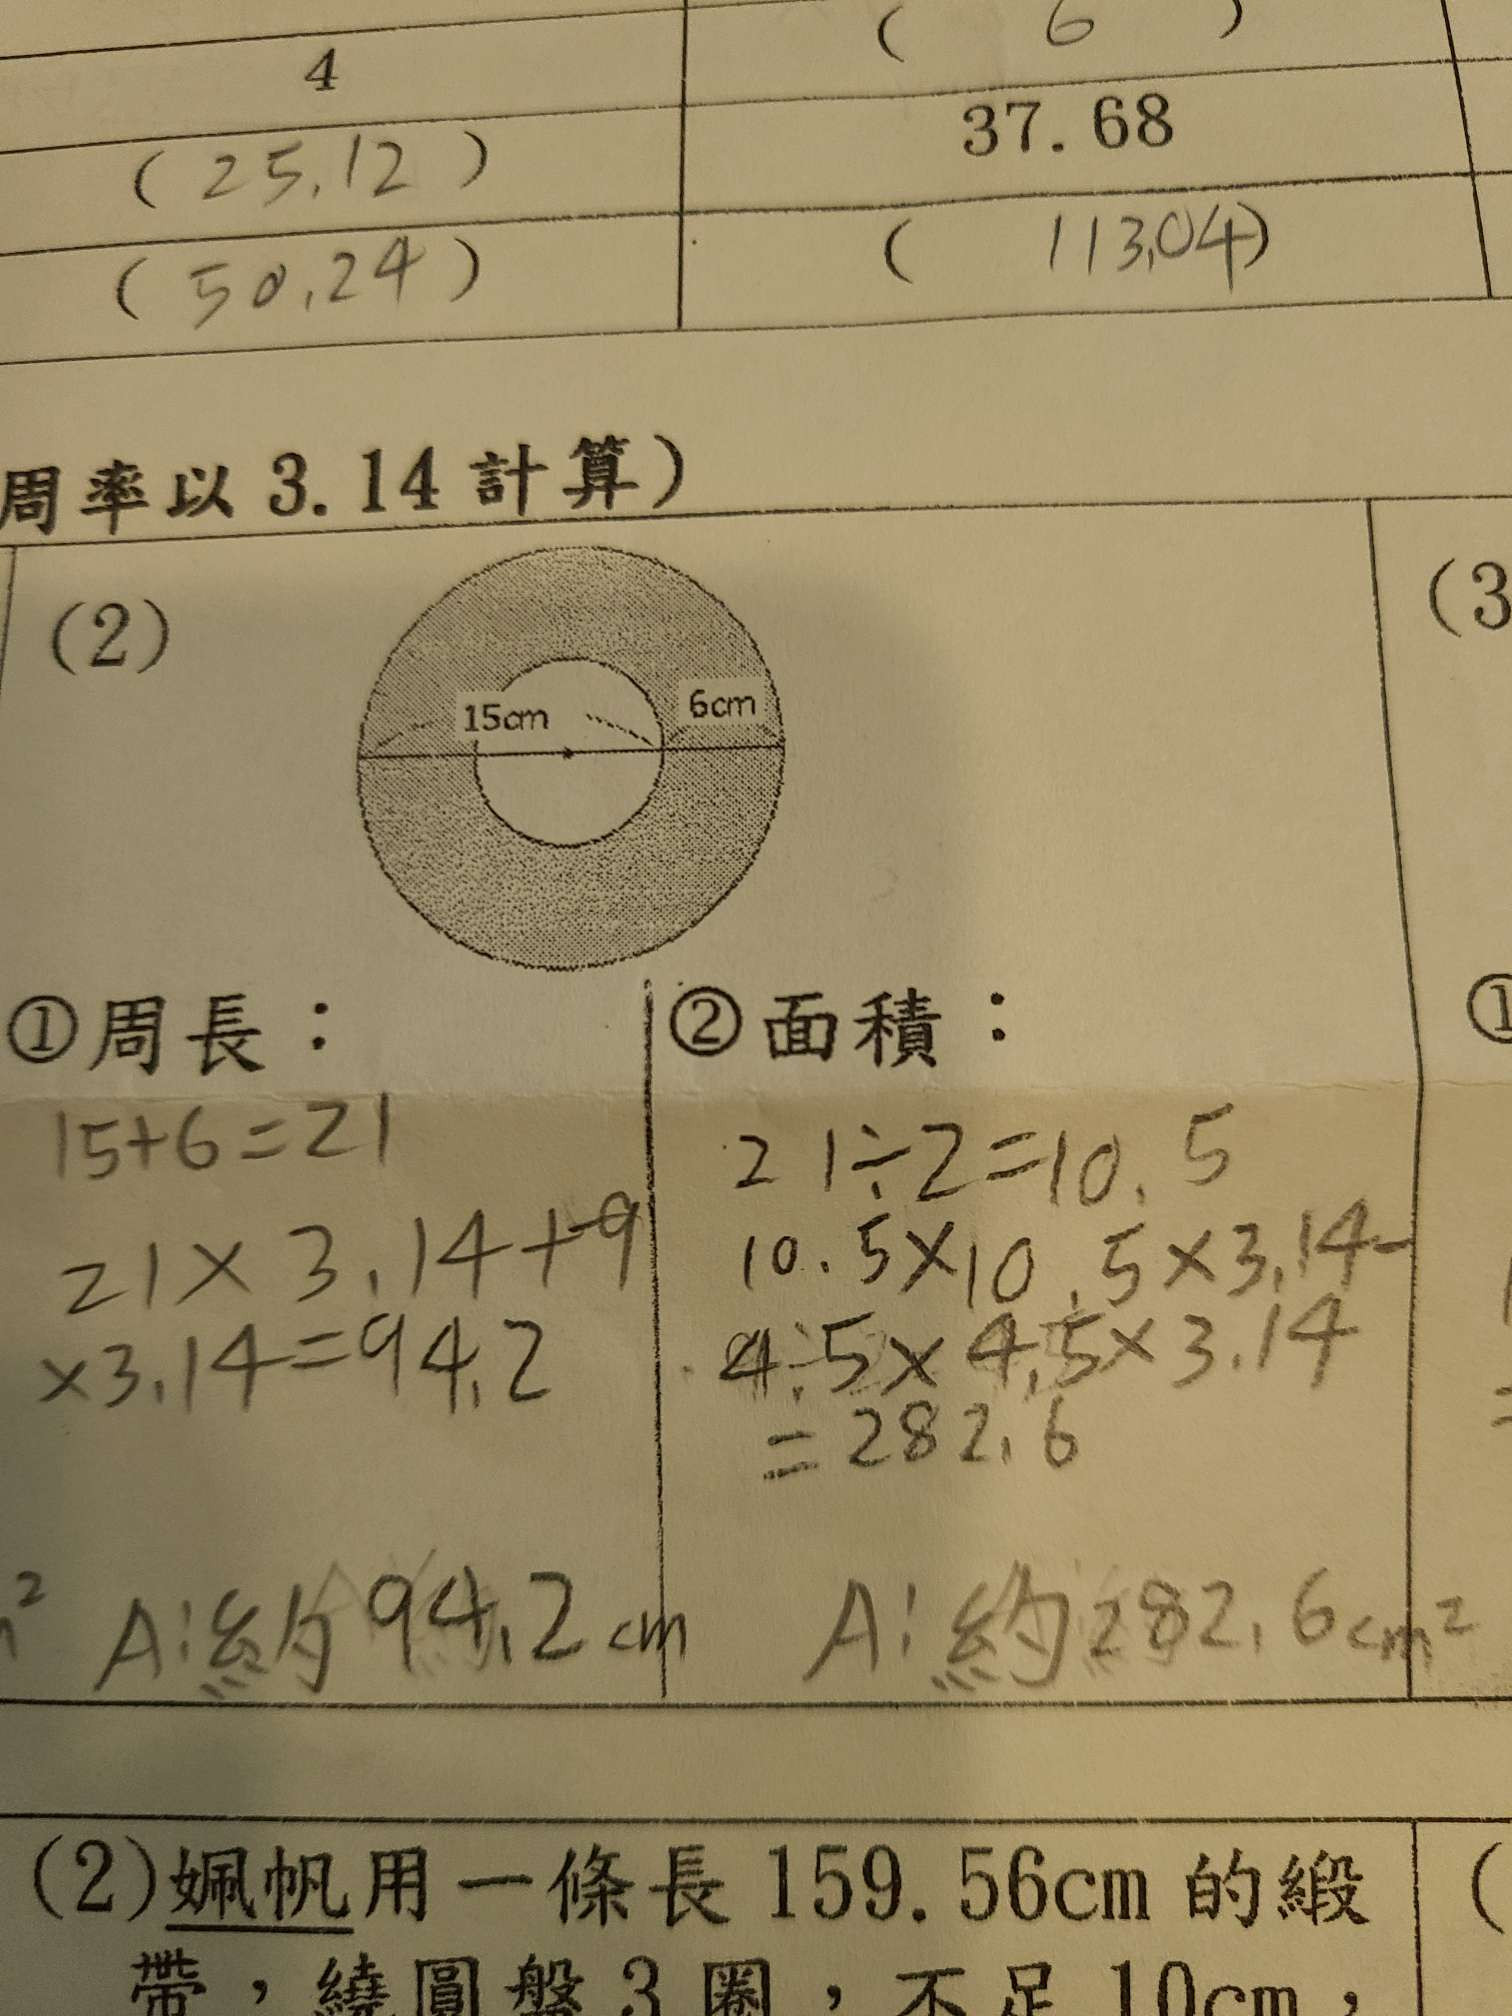 ( 6 )
4
37.68
( 25.12 )
( 113.04)
( 50.24 )
周率以 3.14 計算)
(2)
(3
15cm
6cm
①周長：
②面積：
①
15+6=21
21÷2=10.5
21×3.14+9
10.5×10.5×3.14-
×3.14=94.2
4.5×4.5×3.14
=282.6
A:約94.2cm
A:約282.6cm²
(2)姵帆用一條長 159.56cm 的緞
帶，繞圓盤 3 圈，不足 10cm，